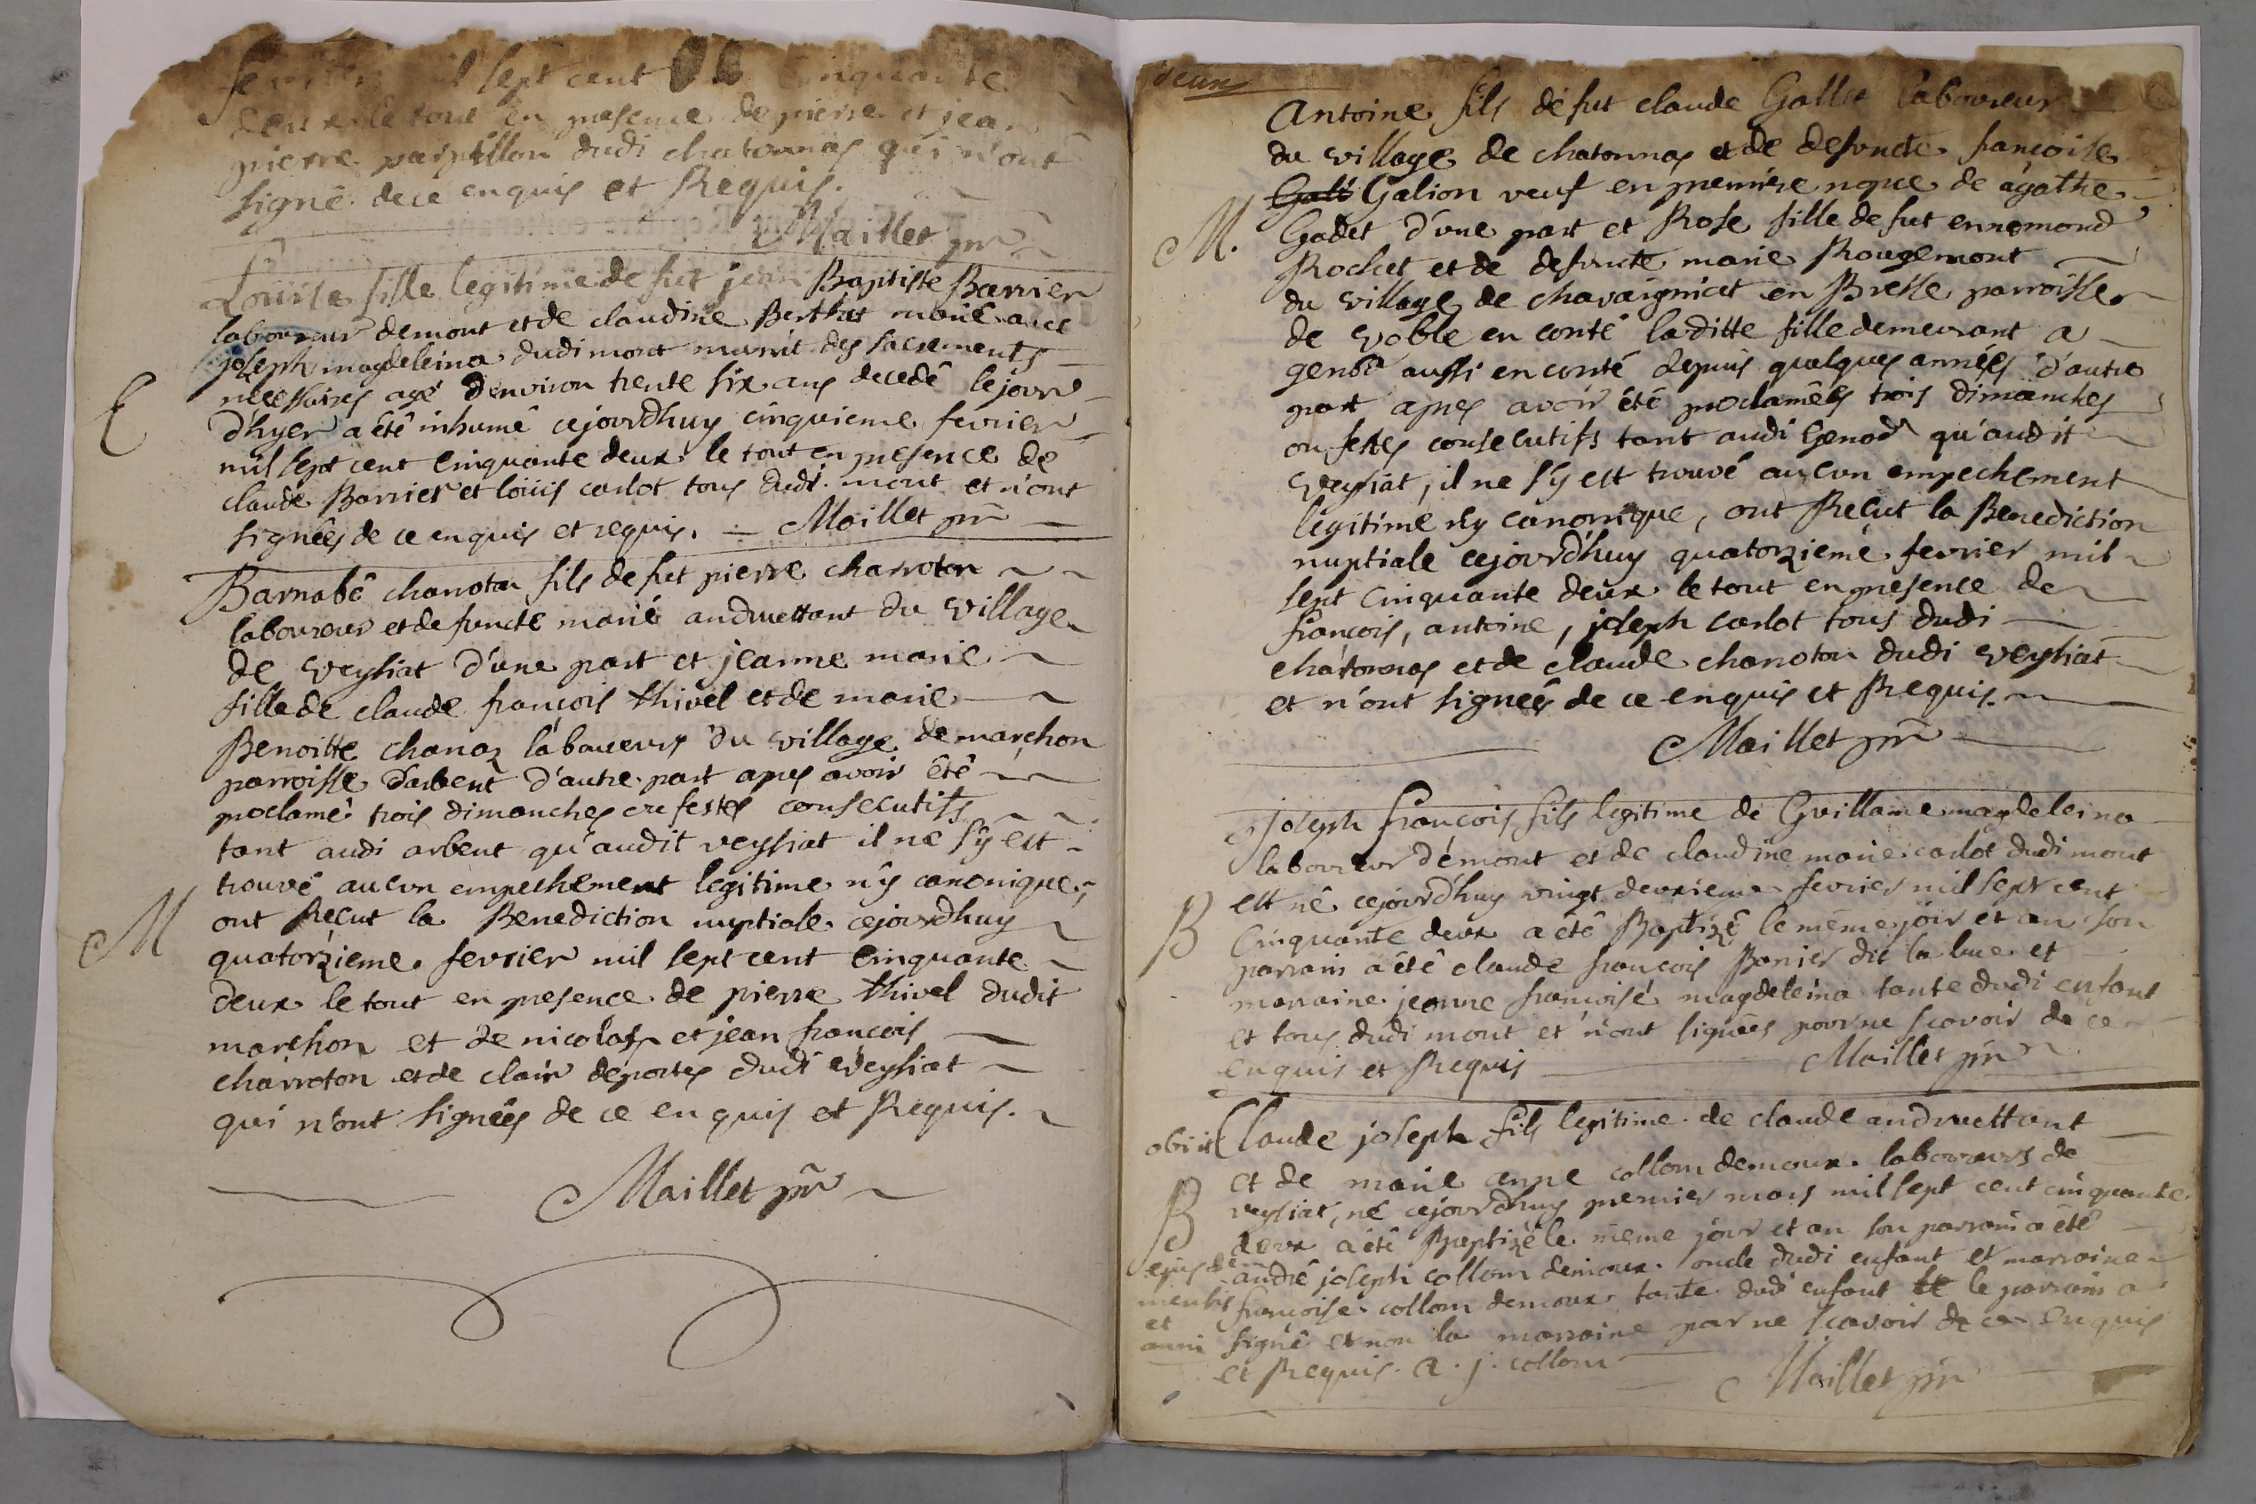 sept cent cinquante
deux le tout en presence de pierre et jean
pierre papillon dudi chatonnas qui n'ont
signé de ce enquis et Requis.
Maillet pr
Loüise fille legitime de fut jean Baptiste Barrier
laboureur demont et de claudine Berthet marié avec
joseph magdeleina dudi mont munit des sacrements
necessaires agé denviron trente six ans decedê le jour
E
d'hyer a êtê inhumê cejourdhuy cinquieme fevrier
mil sept cent cinquante deux le tout en presence de
claude Barrier et loüis carlot tous dudi mont et n'ont
signêes de ce enquis et requis. — Maillet pr
Barnabê charroton fils de fut pierre charroton
laboureur et defuncte marie andruettant du village
de veysiat d'une part et jeanne marie
fille de claude françois thivel et de marie
Benoitte chanaz laboureurs du village de marchon
parroisse darbent d'autre part apres avoir êtê
proclamê trois dimanches ou festes consecutifs
tant audi arbent qu'audit veysiat il ne s'y est
trouvé aucun empechement legitime n'y canonique,
M
ont Reçut la Benediction nuptiale cejourdhuy
quatorzieme fevrier mil sept cent cinquante
deux le tout en presence de pierre thivel dudit
marchon et de nicolas et jean françois
charroton et de clair deportes dudi veysiat
qui n'ont signêes de ce enquis et Requis.
Maillet pr
deux
Antoine fils défut claude Gallet laboureur
du village de chatonnas et de defuncte françoise
Galion veuf en premiere nopce de agathe
M.
Godet d'une part et Rose fille de fut ennemond
Rochet et de defuncte marie Rougemont
du village de chavaigniat en Bresse parroisse
de voble en conté laditte fille demeurant a
genod aussi en conté depuis quelques années d'autre
part apres avoir été proclamêes trois dimanches
ou festes consecutifs tant audi Genod qu'audit
veysiat, il ne s'y est trouvé aucun empechement
legitime n'y canonique, ont Reçut la Benediction
nuptiale cejourd'huy quatorzieme fevrier mil
sept cinquante deux le tout en presence de
françois, antoine, joseph carlot tous dudi
chatonnas et de claude charroton dudi veysiat
et n'ont signeés de ce enquis et Requis.
Maillet pr
Joseph françois fils legitime de Guillame magdeleina
laboureur démont et de claudine marie carlot dudi mont
est né cejourd'huy vingt deuxieme fevrier mil sept cent
B
Cinquante deux a étê Baptizê le même joir et an son
parrain a été claude françois Barrier dit la lue et
marraine jeanne françoise magdeleina tante dudi enfant
et tous dudi mont et n'ont signêes pour ne scavoir de ce
enquis et Requis Maillet pr
obiit Claude joseph fils legitime de claude andruettant
et de marie anne collom demoux laboureurs de
B
veysiat, né cejourdhuy premier mars mil sept cent cinquante
deux a été Baptizé le même jour et an son parrain a été
ejusdem
andrê joseph collom demoux oncle dudi enfant et marraine
mensis
françoise collom demoux tante dudi enfant le parrain a
et
anni
signê et non la marraine par ne scavoir de ce Enquis
et Requis. a. j. collom
Maillet pr